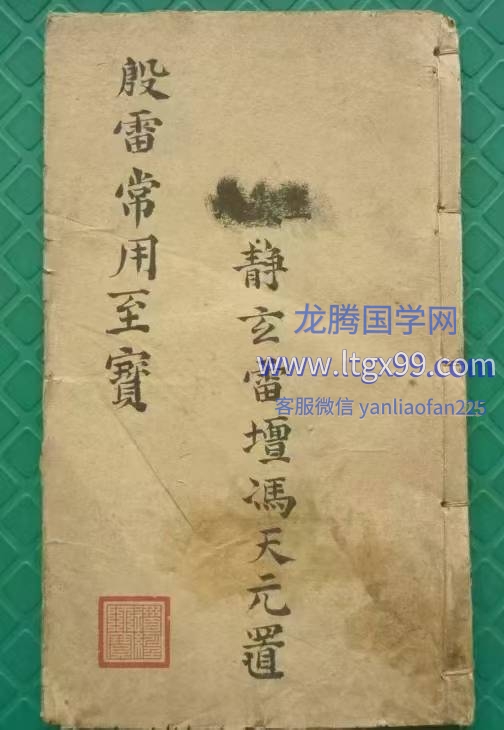 殷雷常用至寶
静玄雷壇馮天元置
龙腾国学网
www.ltgx99.com
客服微信 yanliaofan225